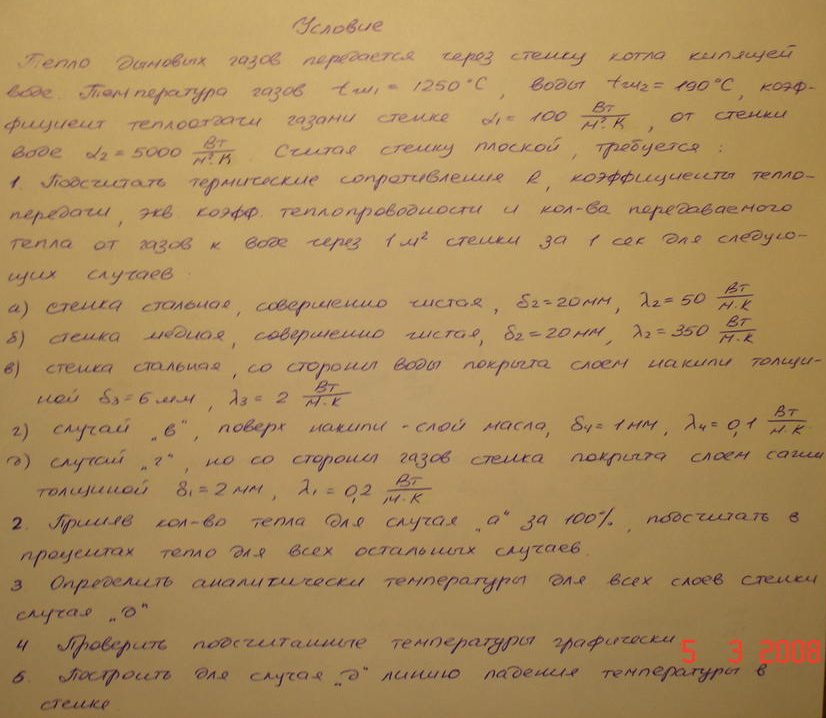 Условие
Тепло дымовых газов передается через стенку котла кипящей
воде. Температура газов tж₁ = 1250 °C, воды tж₂ = 190 °C, коэф-
фициент теплоотдачи газами стенке α₁ = 100 Вт/м²·К, от стенки
воде α₂ = 5000 Вт/м²·К. Считая стенку плоской, требуется:
1. Подсчитать термические сопротивления R, коэффициенты тепло-
передачи, экв коэфф. теплопроводности и кол-ва передаваемого
тепла от газов к воде через 1 м² стенки за 1 сек для следую-
щих случаев:
а) стенка стальная, совершенно чистая, δ₂ = 20 мм, λ₂ = 50 Вт/м·К
б) стенка медная, совершенно чистая, δ₂ = 20 мм, λ₂ = 350 Вт/м·К
в) стенка стальная, со стороны воды покрыта слоем накипи толщи-
ной δ₃ = 6 мм, λ₃ = 2 Вт/м·К
г) случай „в", поверх накипи - слой масла, δ₄ = 1 мм, λ₄ = 0,1 Вт/м·К
д) случай „г", но со стороны газов стенка покрыта слоем сажи
толщиной δ₁ = 2 мм, λ₁ = 0,2 Вт/м·К
2. Приняв кол-во тепла для случая „а" за 100%, подсчитать в
процентах тепло для всех остальных случаев.
3 Определить аналитически температуры для всех слоев стенки
случая „д"
4 Проверить подсчитанные температуры графически
5. Построить для случая „д" линию падения температуры в
стенке
5 3 2008